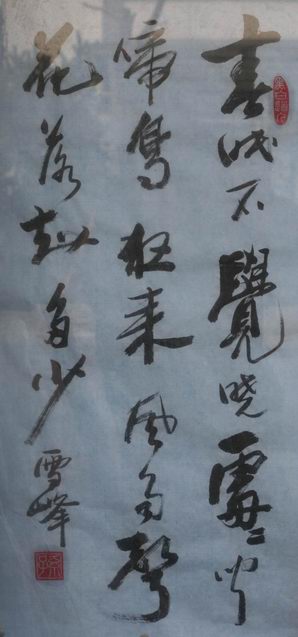 春眠不覺晓處々聞
啼鳥夜来風雨聲
花落知多少
雪峰